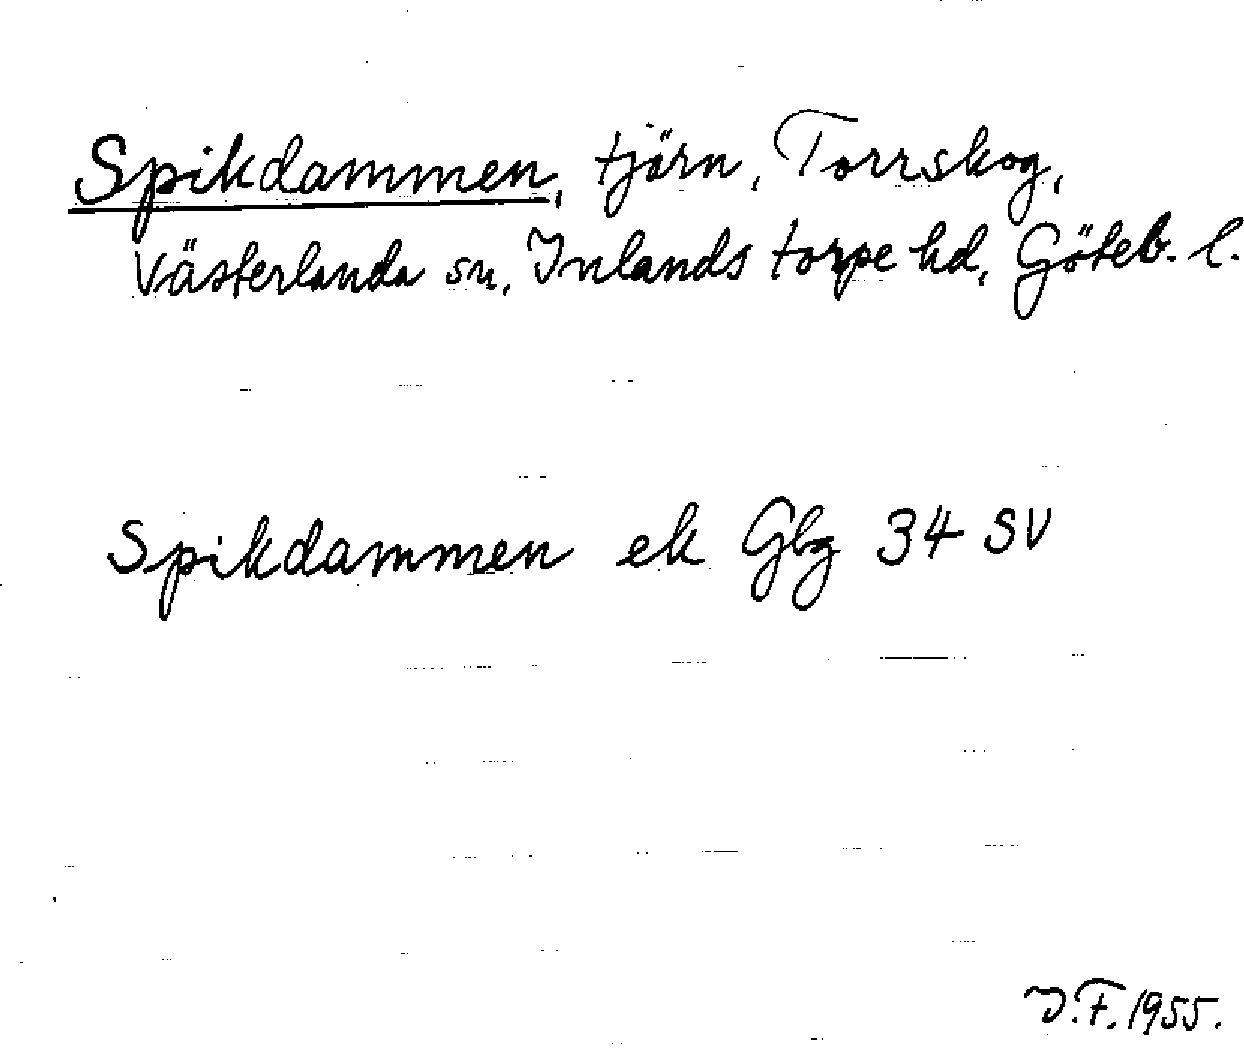 Spikdammen, tjärn, Torrskog,
Västerlanda sn, Inlands torpe hd, Göteb. l.
Spikdammen ek Gbg 34 SV
J.F. 1955.